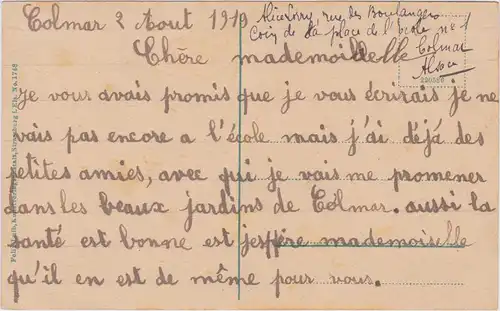 Colmar 2 Aout 1919
rue des Boulangers
Coin de la place de l'école no 1
Colmar
Alsace
Chère mademoiselle
je vous avais promis que je vous écrirais je ne
vais pas encore a l'école mais j'ai déjà des
petites amies, avec qui je vais me promener
dans les beaux jardins de Colmar. aussi la
santé est bonne est j'espère mademoiselle
qu'il en est de même pour vous.